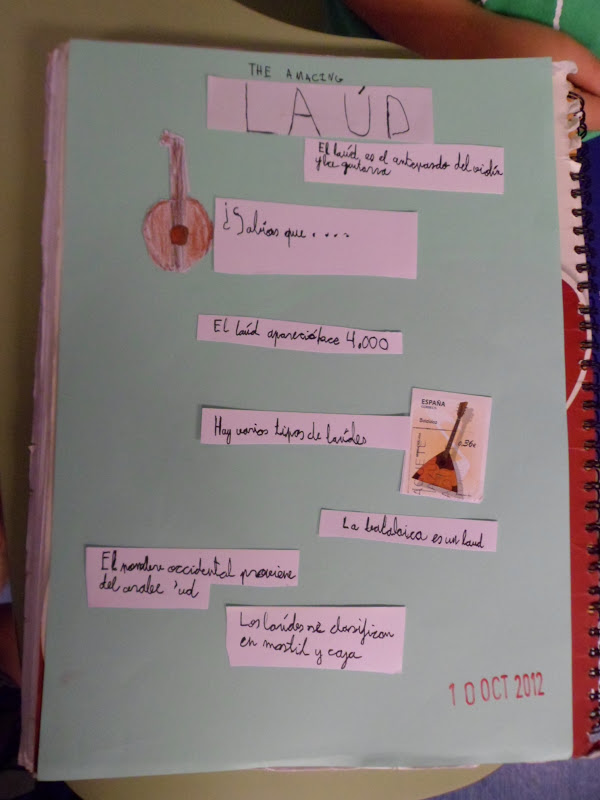 THE AMACING
LAÚD
El laúd es el antepasado del violín
y la guitarra
¿Sabias que....
El laúd apareció hace 4.000
Hay varios tipos de laúdes
ESPAÑA
CORREOS
0,36€
La balalaica es un laud
El nombre occidental proviene
del arabe 'ud
Los laúdes se clasifican
en mastil y caja
10 OCT 2012